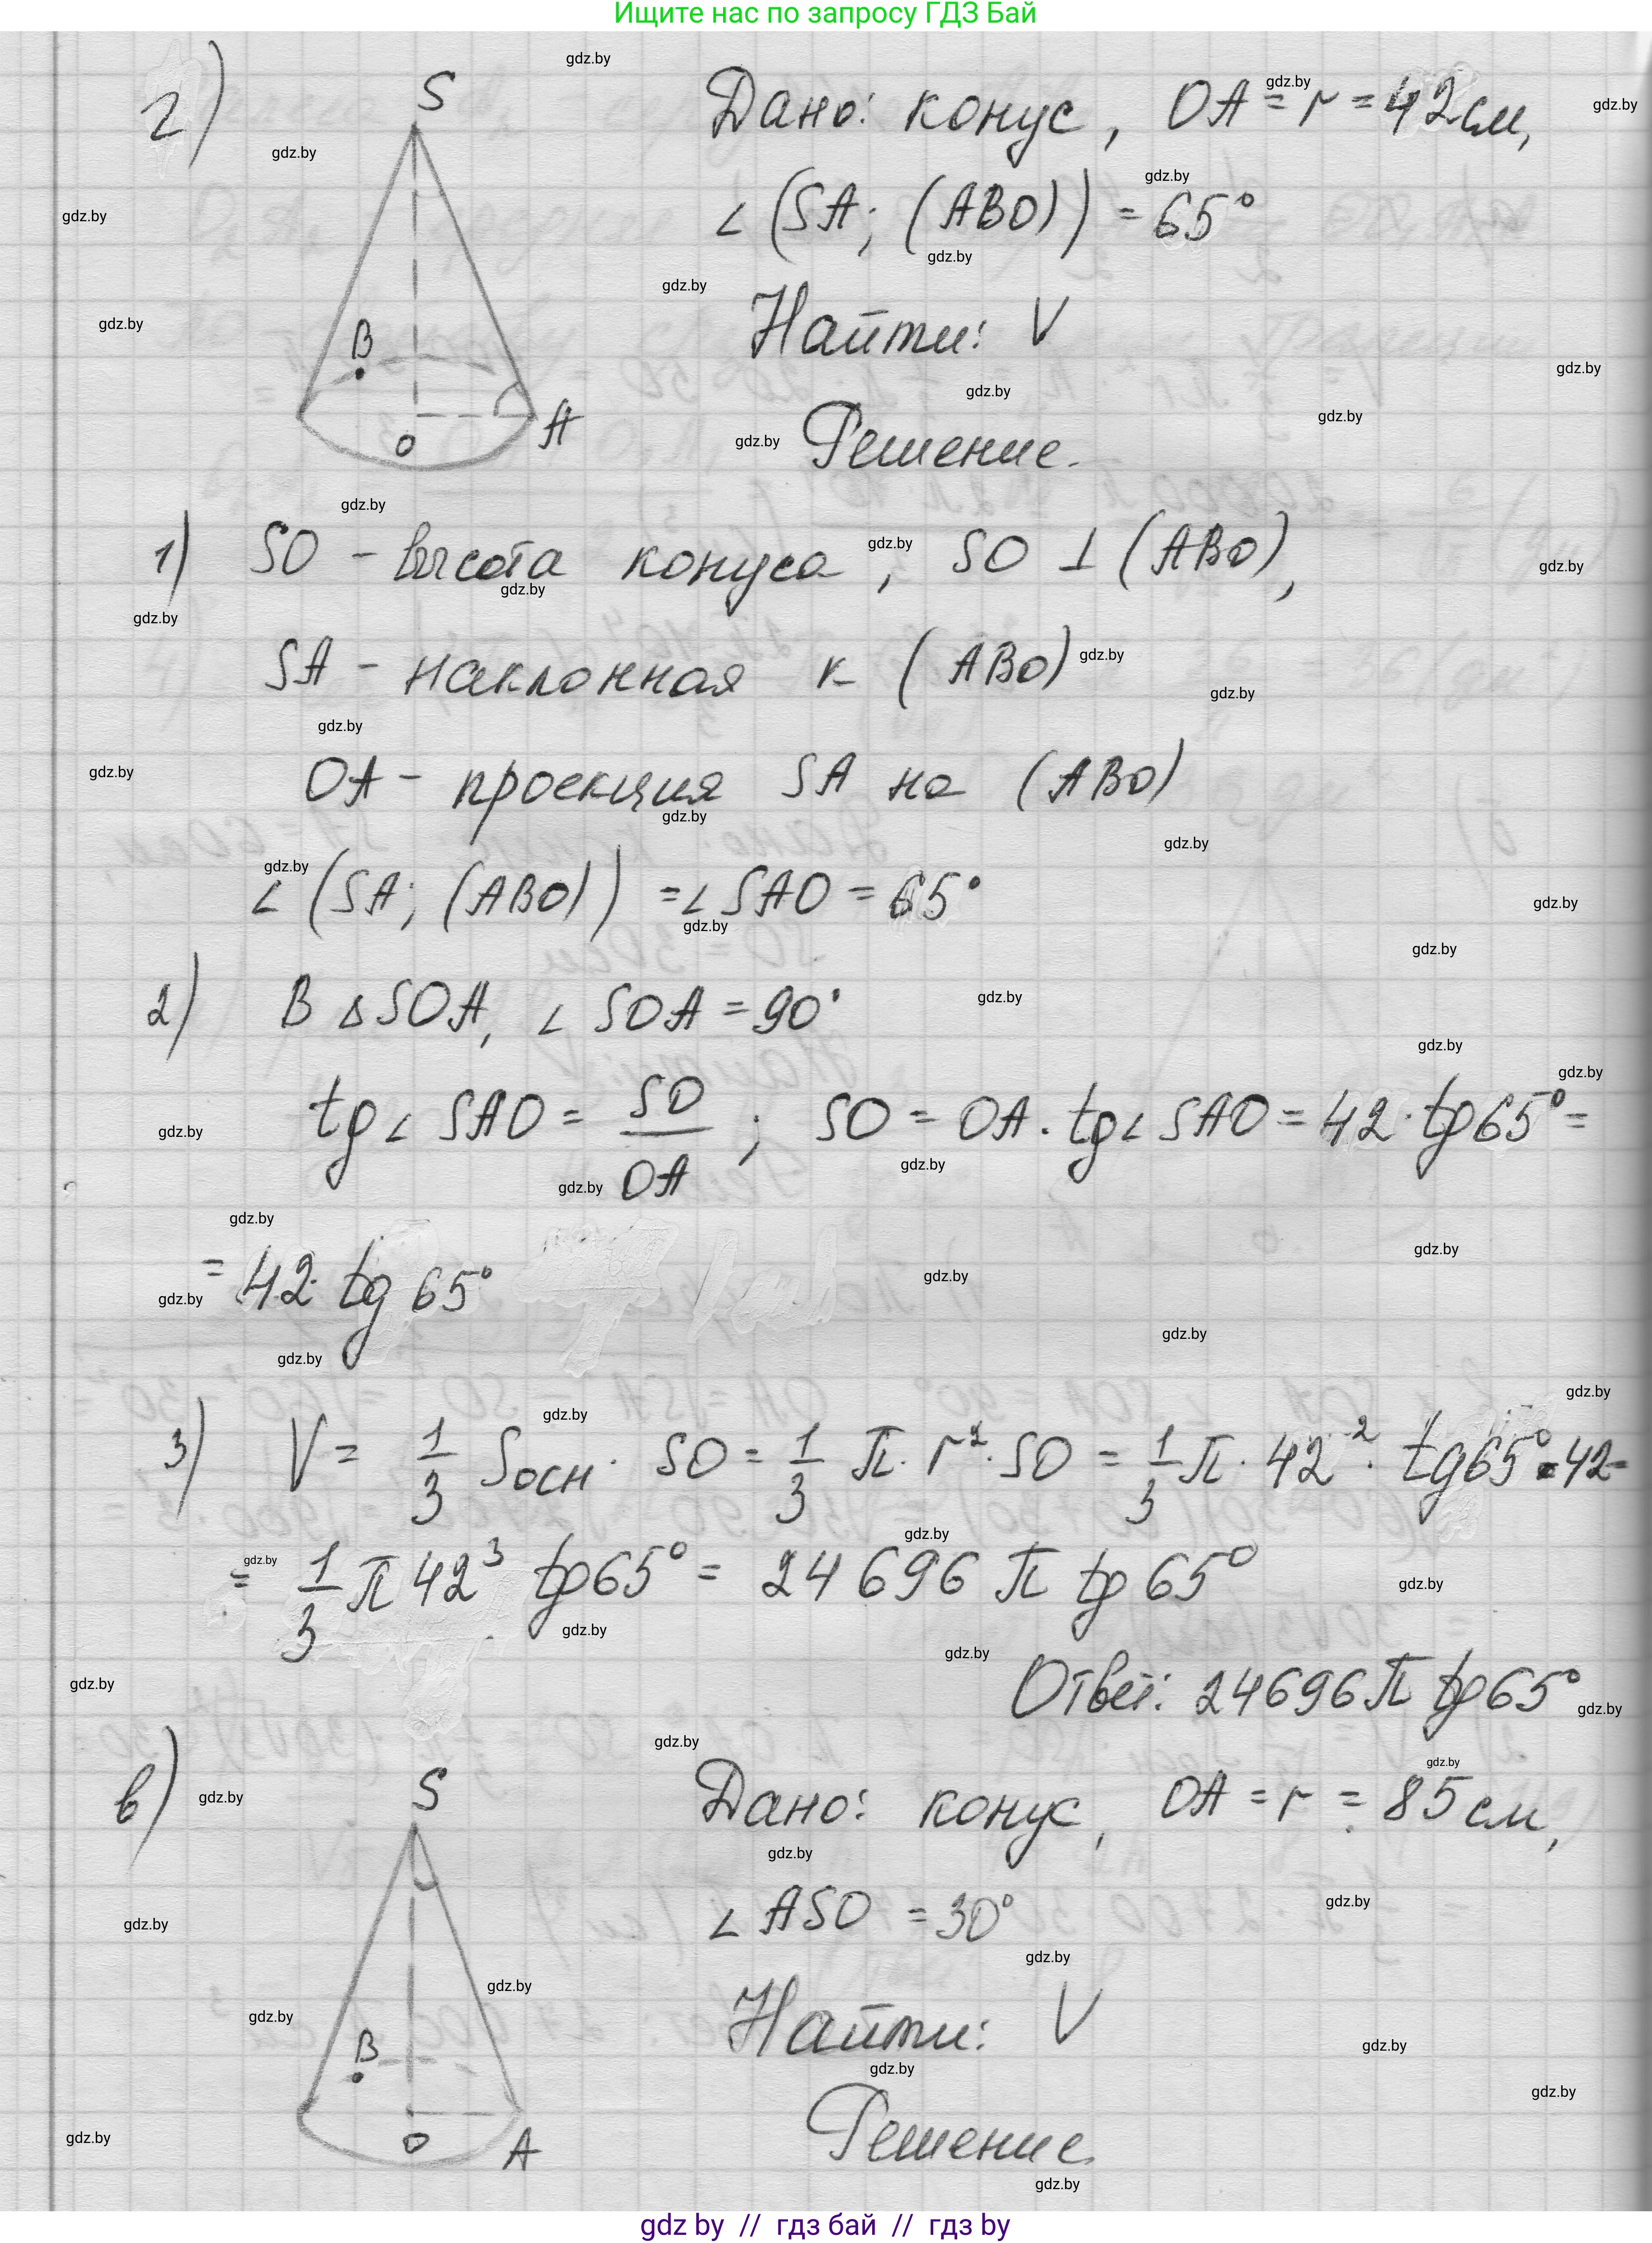 Ищите нас по запросу ГДЗ Бай
2)
S
B
O
A
Дано: конус, OA = r = 42 см,
∠(SA; (ABO)) = 65°
Найти: V
Решение.
1) SO - высота конуса, SO ⊥ (ABO),
SA - наклонная к (ABO)
OA - проекция SA на (ABO)
∠(SA; (ABO)) = ∠SAO = 65°
2) В △SOA, ∠SOA = 90°
tg∠SAO = SO/OA ; SO = OA · tg∠SAO = 42 · tg65° =
= 42 · tg 65°
3) V = 1/3 Sосн · SO = 1/3 π · r² · SO = 1/3 π · 42² · tg65° · 42 =
= 1/3 π 42³ tg65° = 24696 π tg65°
Ответ: 24696 π tg65°
в)
S
B
O
A
Дано: конус, OA = r = 85 см,
∠ASO = 30°
Найти: V
Решение.
gdz by // гдз бай // гдз by